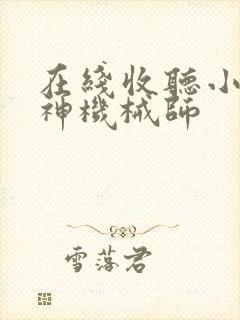 在綫收聽小
神機械師
雪落君